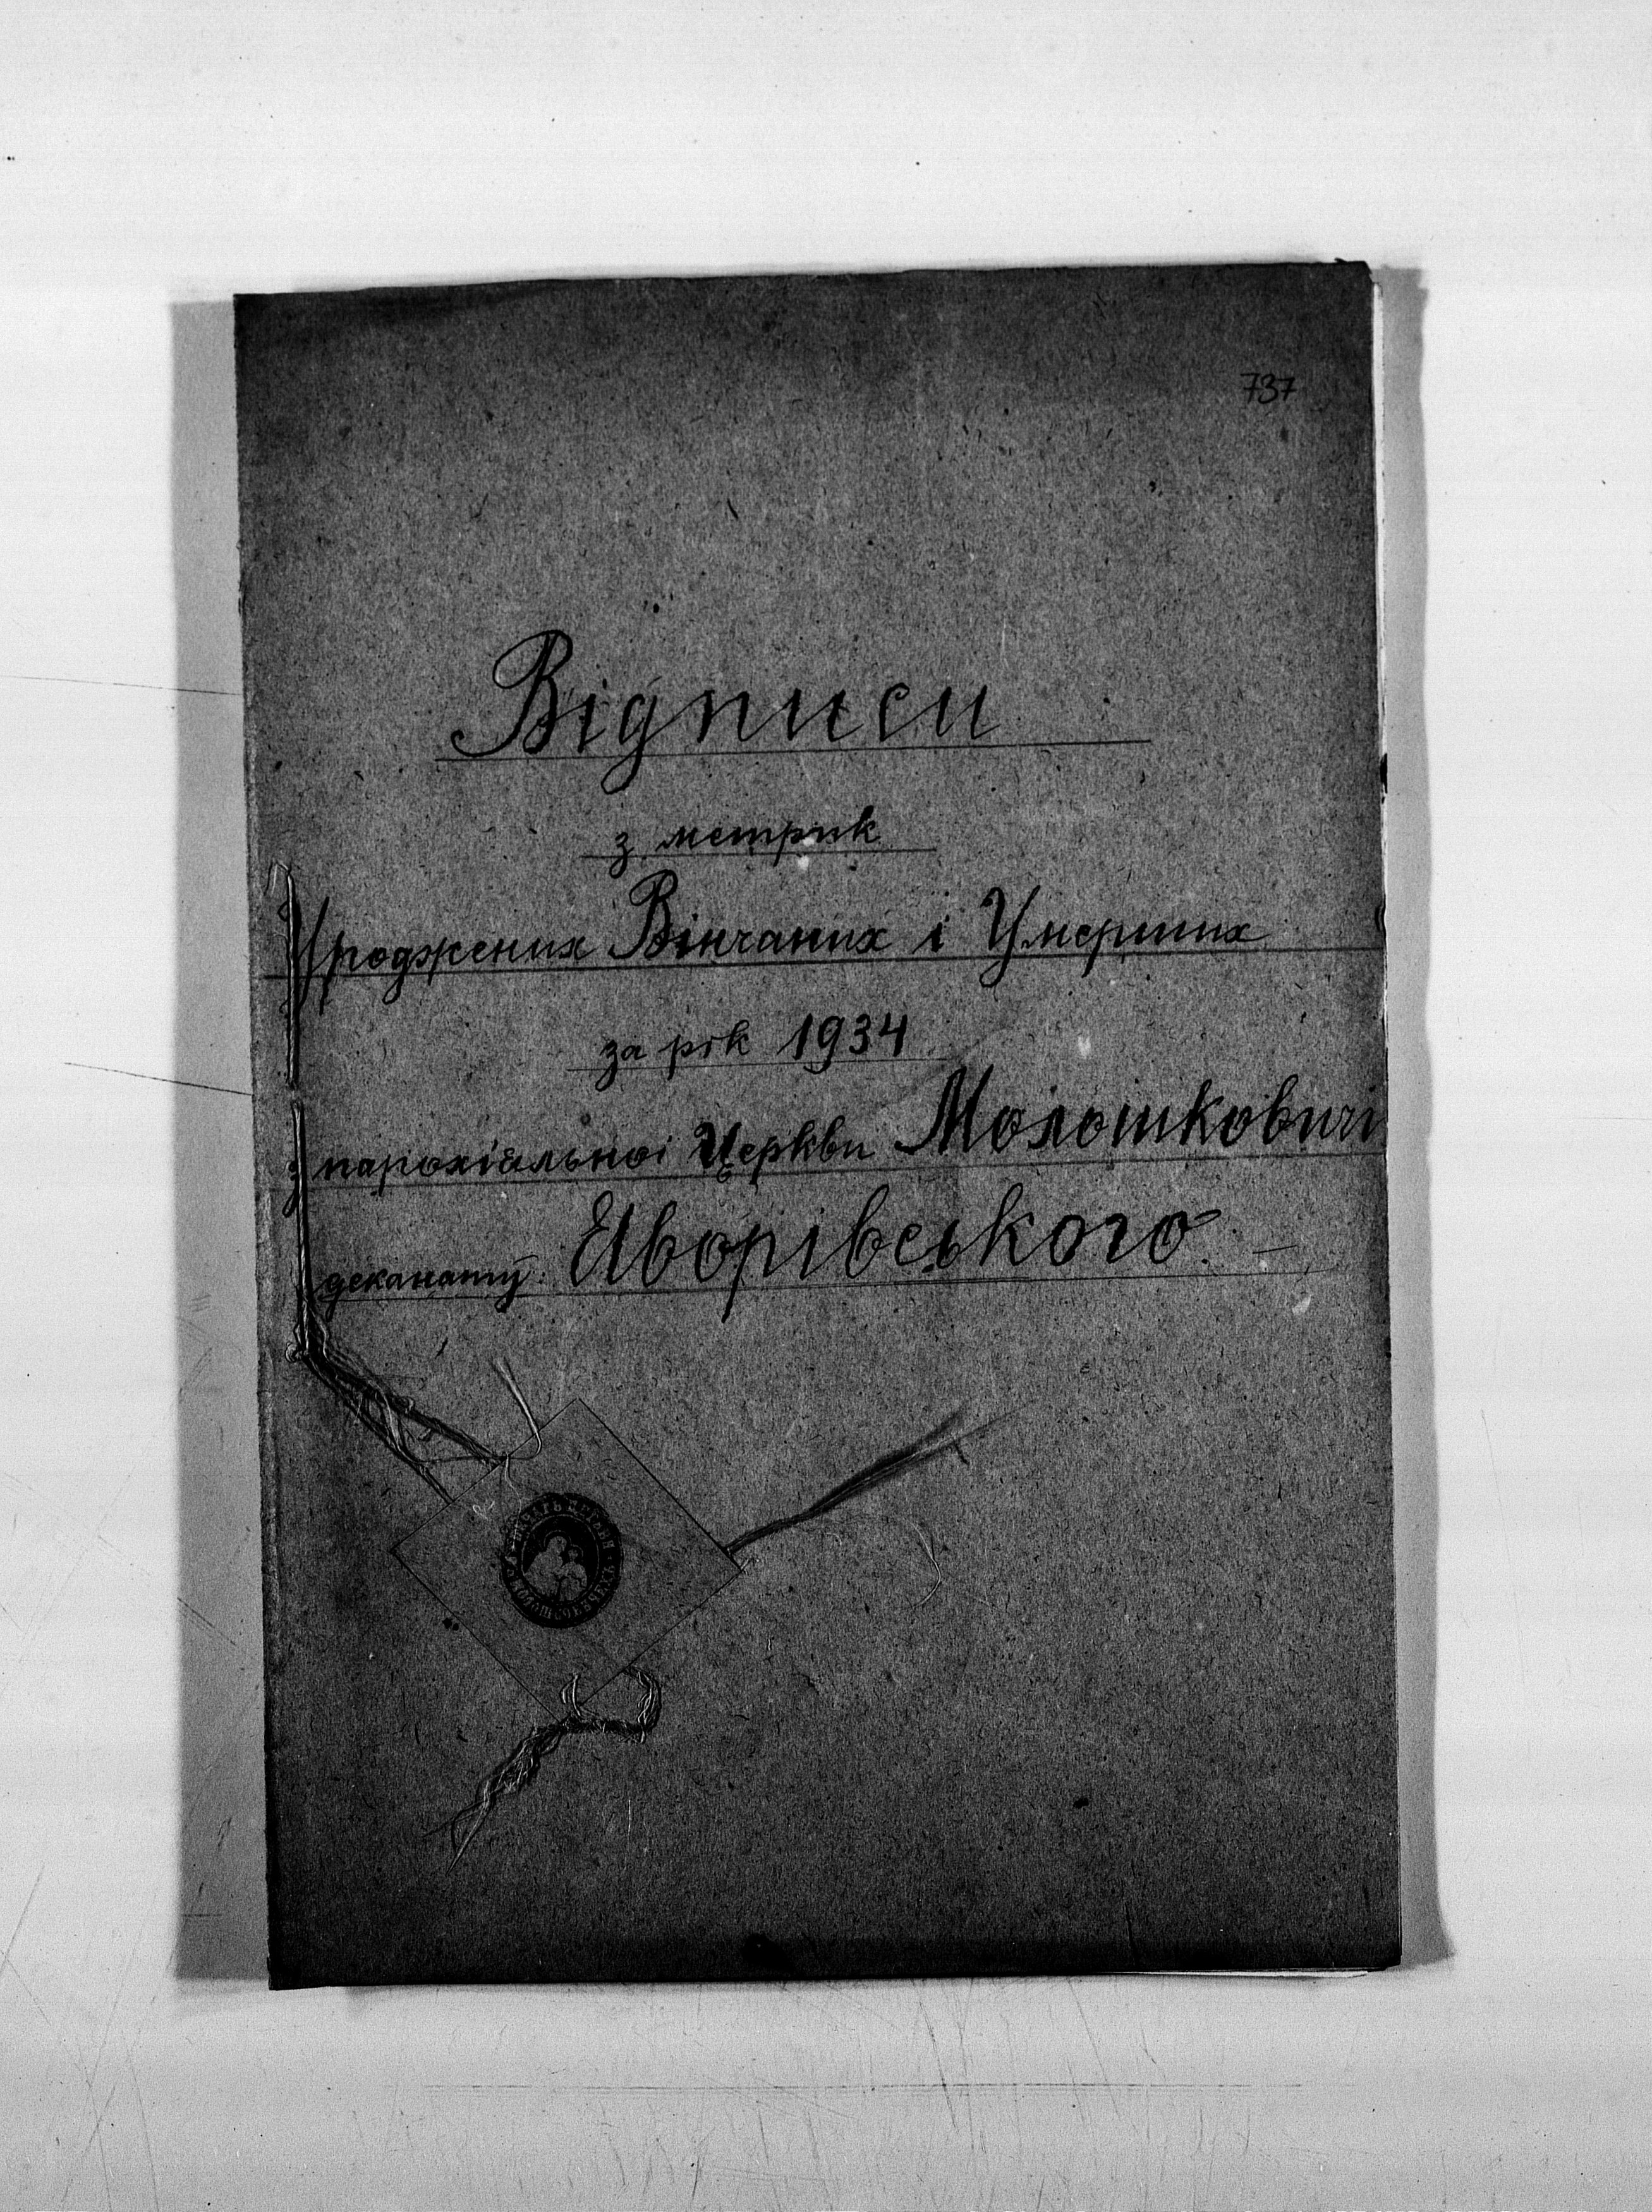 737
Відписи
з метрик
Уроджених Вінчаних і Умерших
за рік 1934
з парохіяльної Церкви Молошковичі
деканату: Яворівського. —